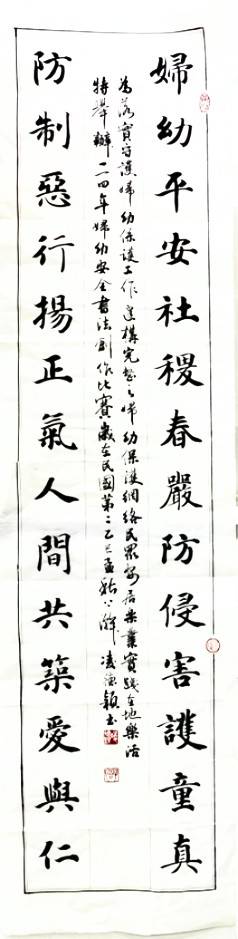 婦幼平安社稷春嚴防侵害護童真
為落實守護婦幼保護工作建構完整之婦幼保護網絡民眾安居樂業實踐在地樂活
特舉辦一一四年婦幼安全書法創作比賽歲在民國第二乙巳孟秋
防制惡行揚正氣人間共築愛與仁